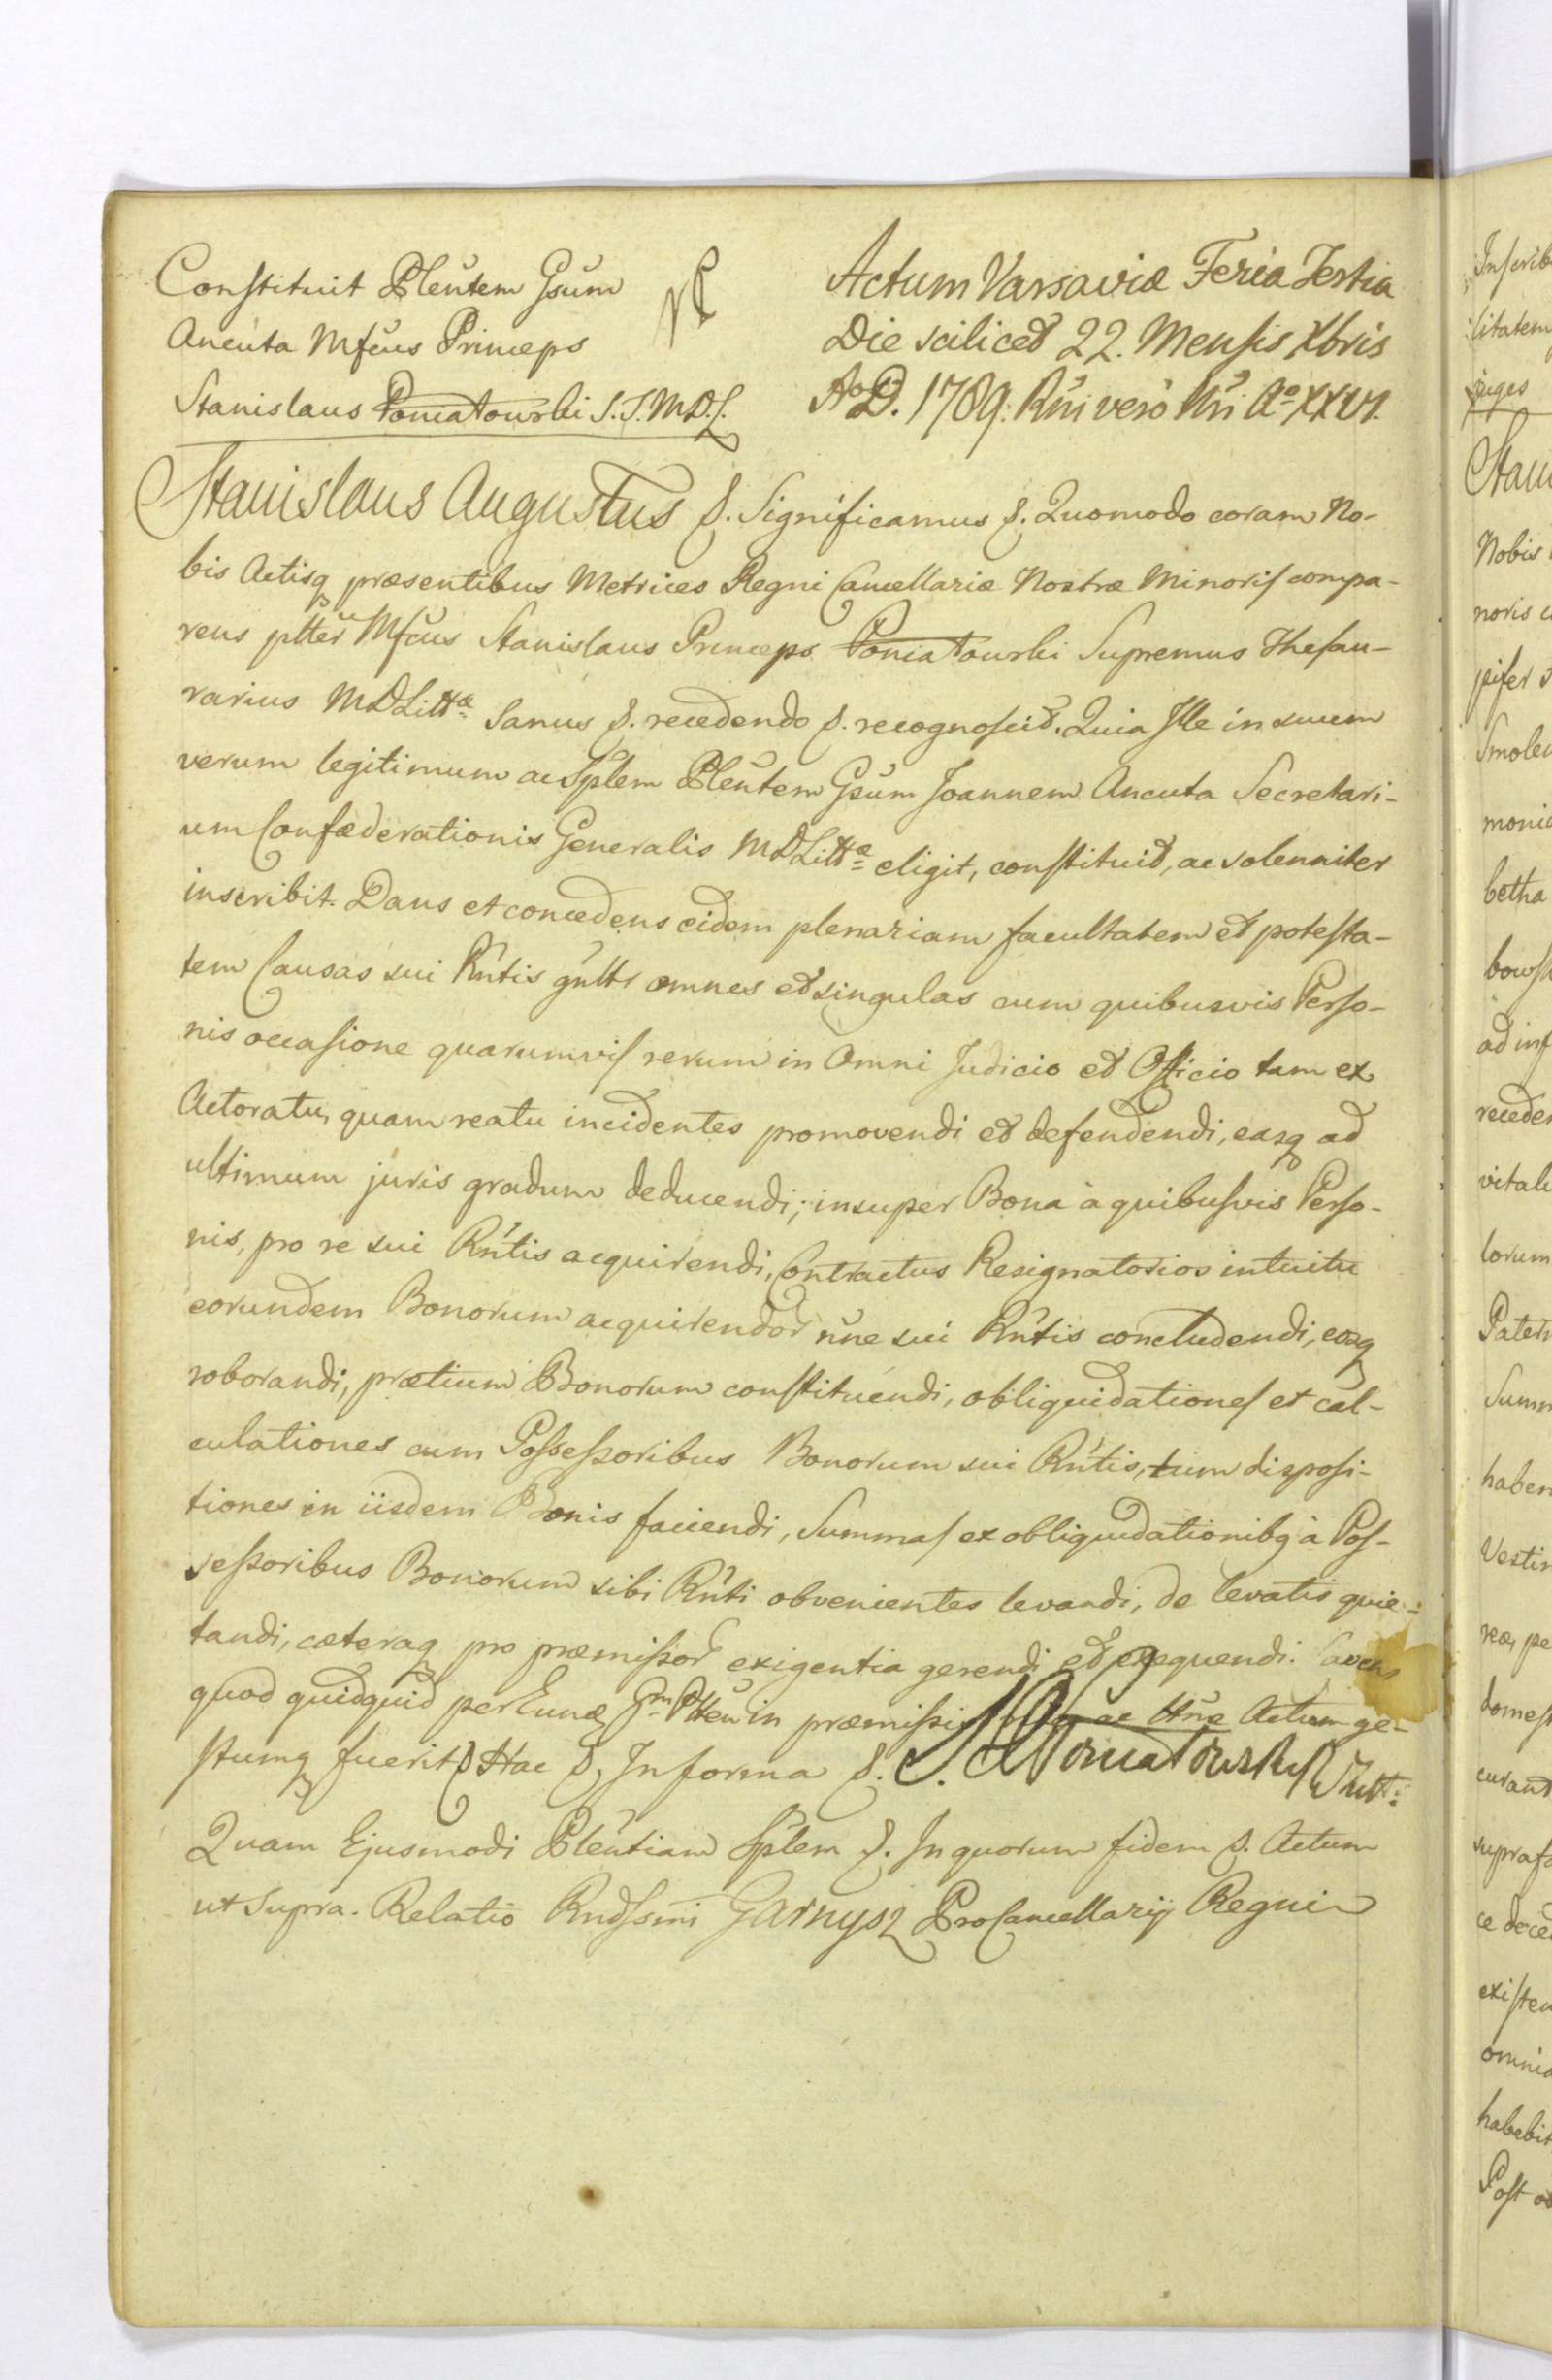 Constituit Plentem Gsum
Ancuta Mfcus Princeps
Stanislaus Poniatowski S.T.M.D.L.
Actum Varsaviæ Feria Tertia
Die scilicet 22. Mensis Xbris
Ao D. 1789. Rni vero Nri Ao XXVI.
Stanislaus Augustus &. Significamus &. Quomodo coram No-
bis Actisq præsentibus Metrices Regni Cancellariæ Nostræ Minoris compa-
rens pltter Mfcus Stanislaus Princeps Poniatowski Supremus Thesau-
rarius MDLittæ Sanus &. recedendo &. recognoscit. Quia Ille in suum
verum legitimum ac Splem Plentem Gsum Joannem Ancuta Secretari-
um Confæderationis Generalis MDLittæ eligit, constituit, ac solenniter
inscribit. Dans et concedens eidem plenariam facultatem et potesta-
tem Causas sui Rntis gnltr omnes et singulas cum quibusvis Perso-
nis occasione quarumvis rerum in Omni Judicio et Officio tam ex
Actoratu, quam reatu incidentes promovendi et defendendi, easq ad
ultimum juris gradum deducendi; insuper Bona à quibusvis Perso-
nis, pro re sui Rntis acquirendi, Contractus Resignatorios intuitu
eorundem Bonorum acquirendor nne sui Rntis concludendi, eosq
roborandi, prætium Bonorum constituendi, obliquidationes et cal-
culationes cum Possessoribus Bonorum sui Rntis, tum disposi-
tiones in iisdem Bonis faciendi, Summas ex obliquidationibq à Pos-
sessoribus Bonorum sibi Rnti obvenientes levandi, de levatis quie-
tandi, cæteraq pro præmissor exigentia gerendi et exequendi. Cavens
quod quidquid per Eunq Gm Plten in præmissis ac ttne Actum ge-
stumq fuerit &. Hac &. In forma &. S. Poniatowski
Quam Ejusmodi Plentiam Splem &. In quorum fidem &. Actum
ut Supra. Relatio Rndssmi Garnysz ProCancellarij Regni
Inscrib
litatem
juges
Stani
Nobis
noris c
pifer
Smolen
monia
betha
bowsk
ad inf
receden
vitali
lorum
Patern
Summ
haben
Vestin
reæ, pe
domest
curant
suprasc
ce dece
existen
omnia
habebit
Post